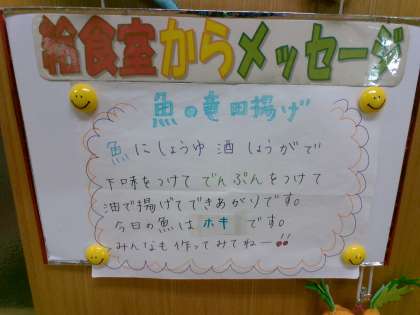 給食室からメッセージ
魚の竜田揚げ
魚にしょうゆ 酒 しょうがで
下味をつけて でんぷんをつけて
油で揚げてできあがりです。
今日の魚は ホキ です。
みんなも作ってみてねー!!